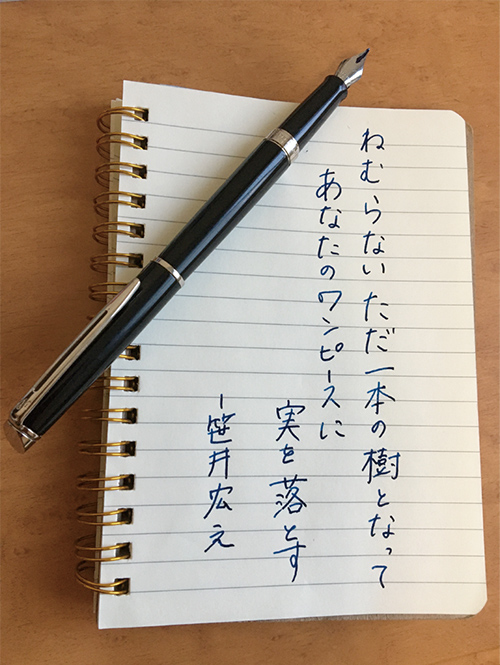 ねむらないただ一本の樹となって
あなたのワンピースに
実を落とす
－笹井宏之